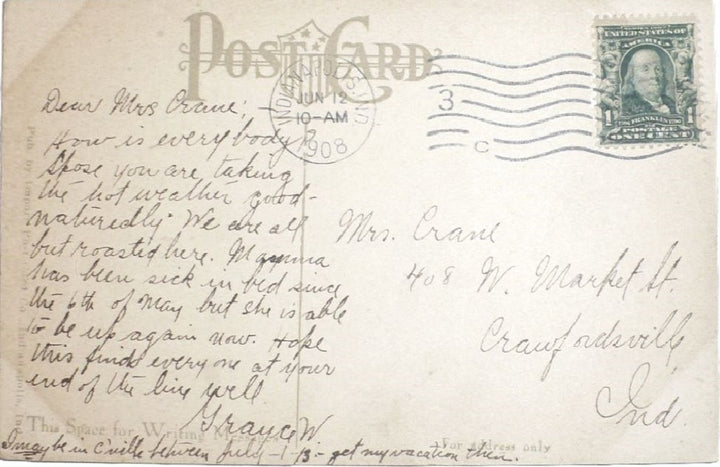 POST CARD
INDIANAPOLIS, IND
JUN 12
10-AM
1908
3
C
UNITED STATES OF AMERICA
1
FRANKLIN
1
POSTAGE
ONE CENT
Dear Mrs Crane;
How is everybody?
Spose you are taking
the hot weather good-
naturedly. We are all
but roasted here. Mamma
has been sick in bed since
the 6th of May but she is able
to be up again now. Hope
this finds everyone at your
end of the line well
Grance W
I may be in C'ville between July -1-15- get my vacation then.
Mrs. Crane
408 W. Market St.
Crawfordsville
Ind.
This Space for Writing Messages
For address only